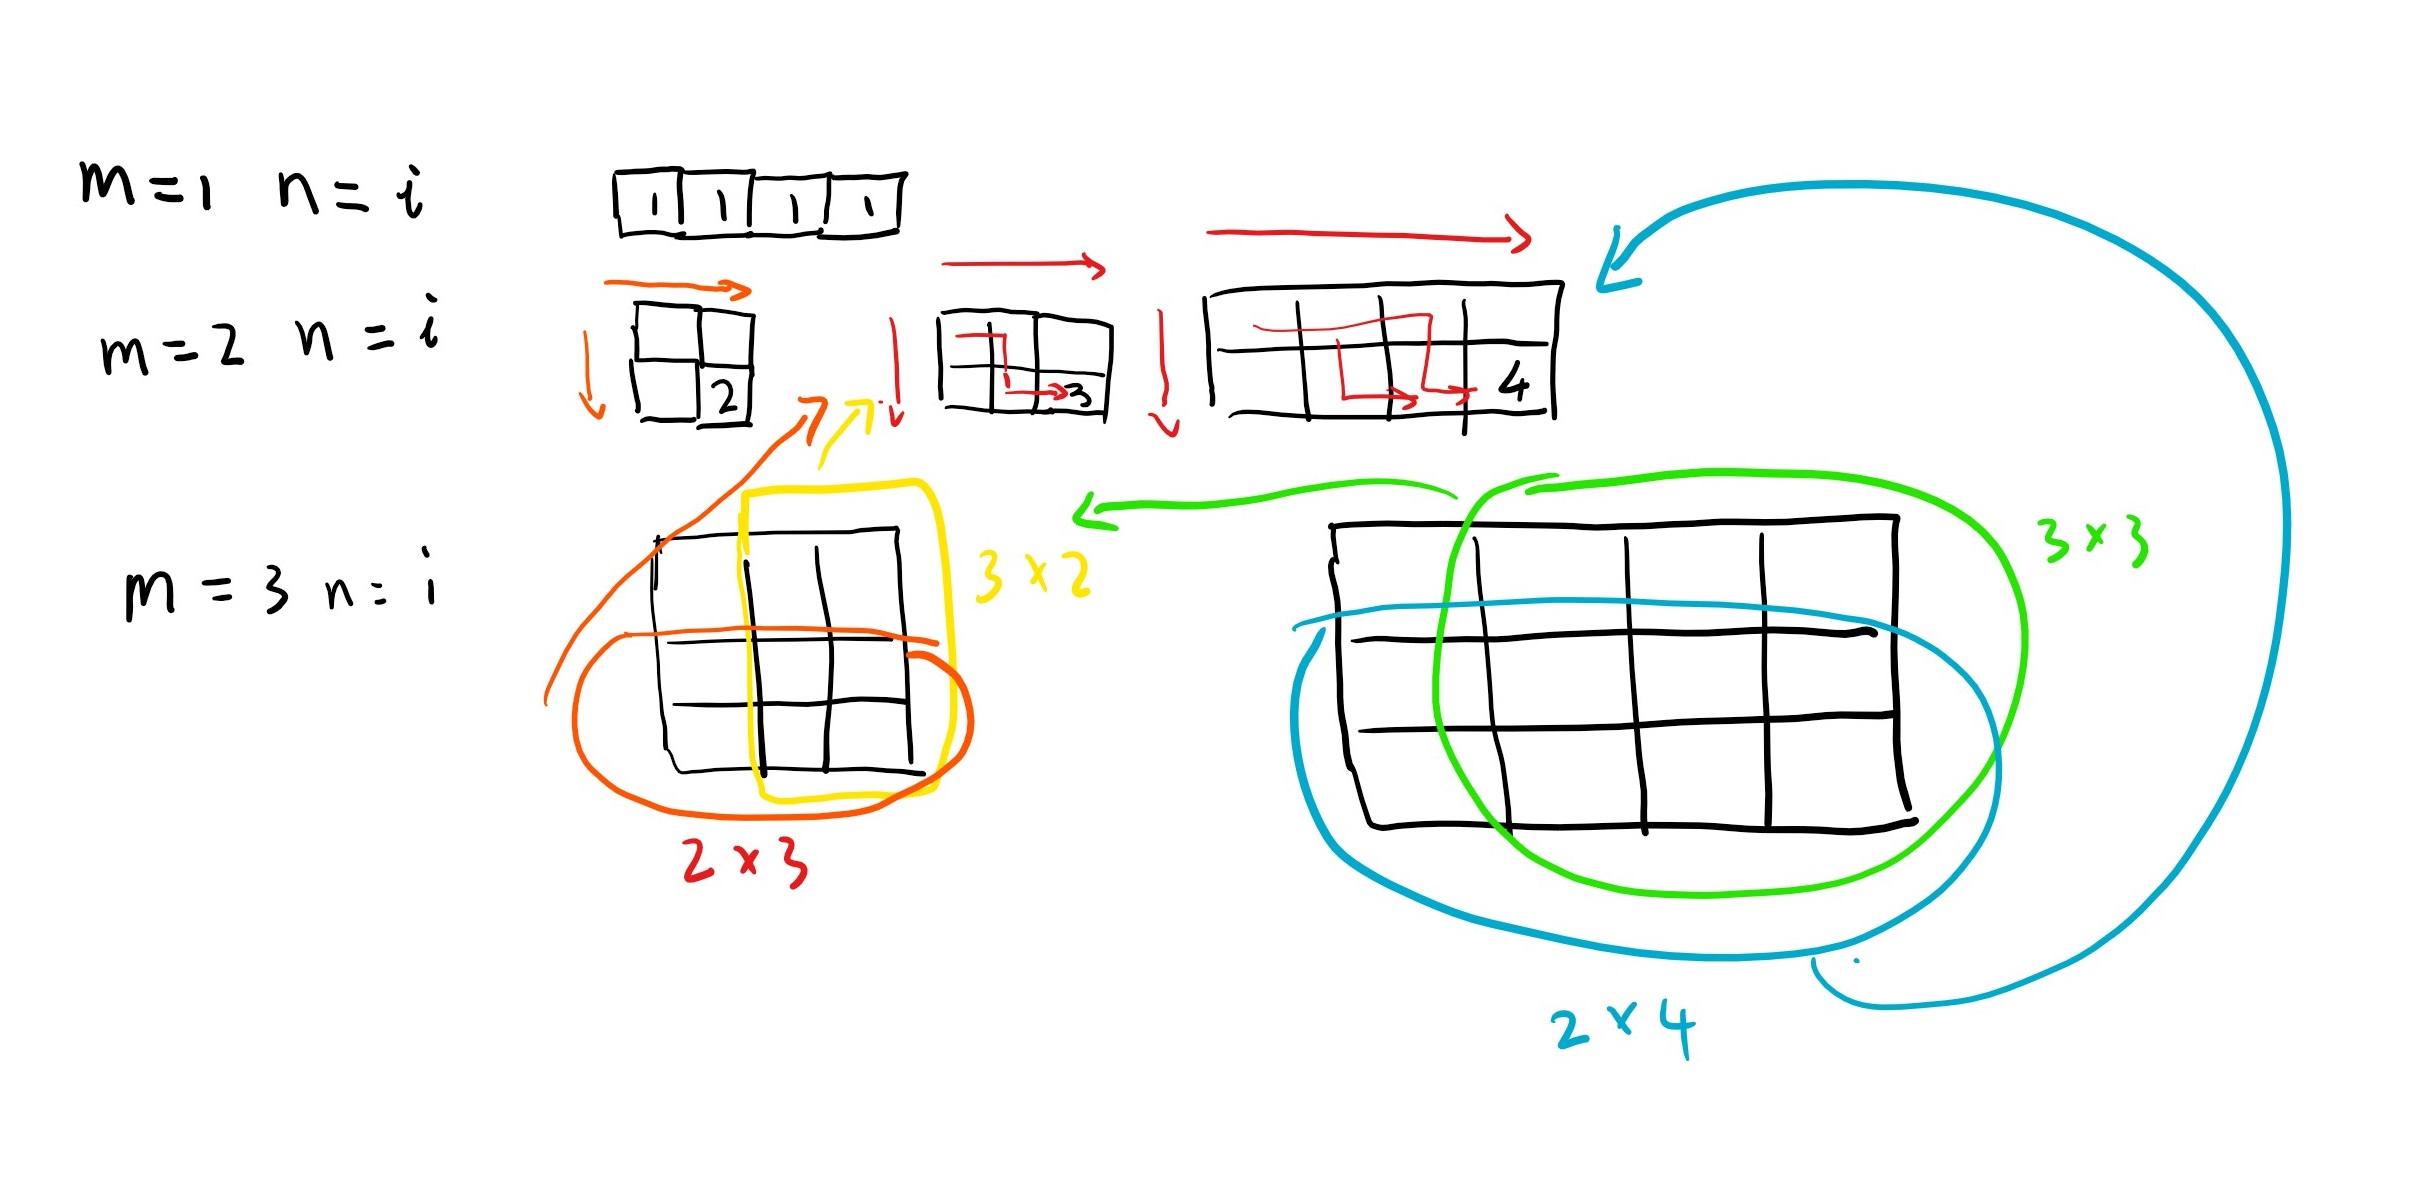 m=1 n=i
1 1 1 1
m=2 n=i
2
3
4
m=3 n=i
3×2
3×3
2×3
2×4